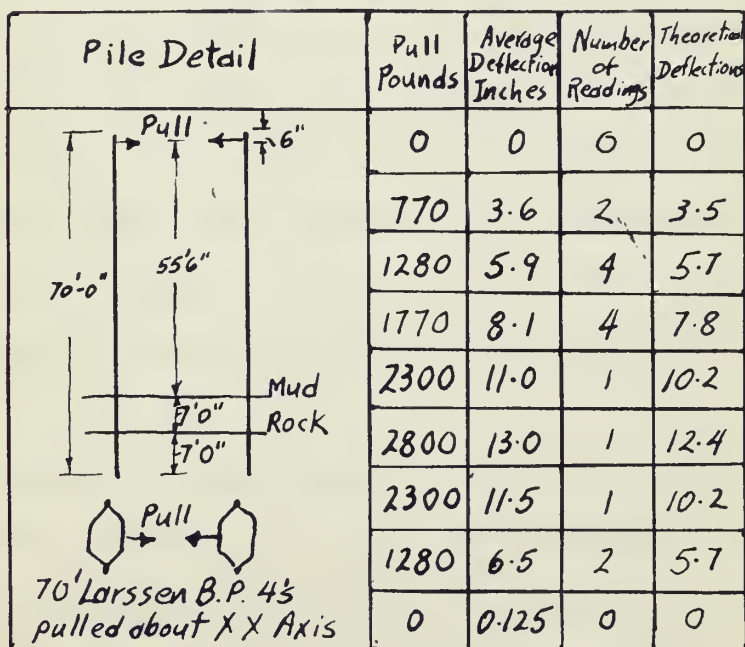 Pile Detail
Pull Pounds
Average Deflection Inches
Number of Readings
Theoretical Deflections
Pull
6"
70'-0"
55'6"
Mud
7'0"
Rock
7'0"
Pull
70' Larssen B.P. 4's
pulled about X X Axis
0 0 0 0
770 3.6 2 3.5
1280 5.9 4 5.7
1770 8.1 4 7.8
2300 11.0 1 10.2
2800 13.0 1 12.4
2300 11.5 1 10.2
1280 6.5 2 5.7
0 0.125 0 0